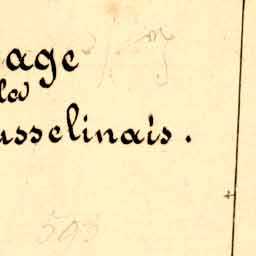 age
la
usselinais.
593